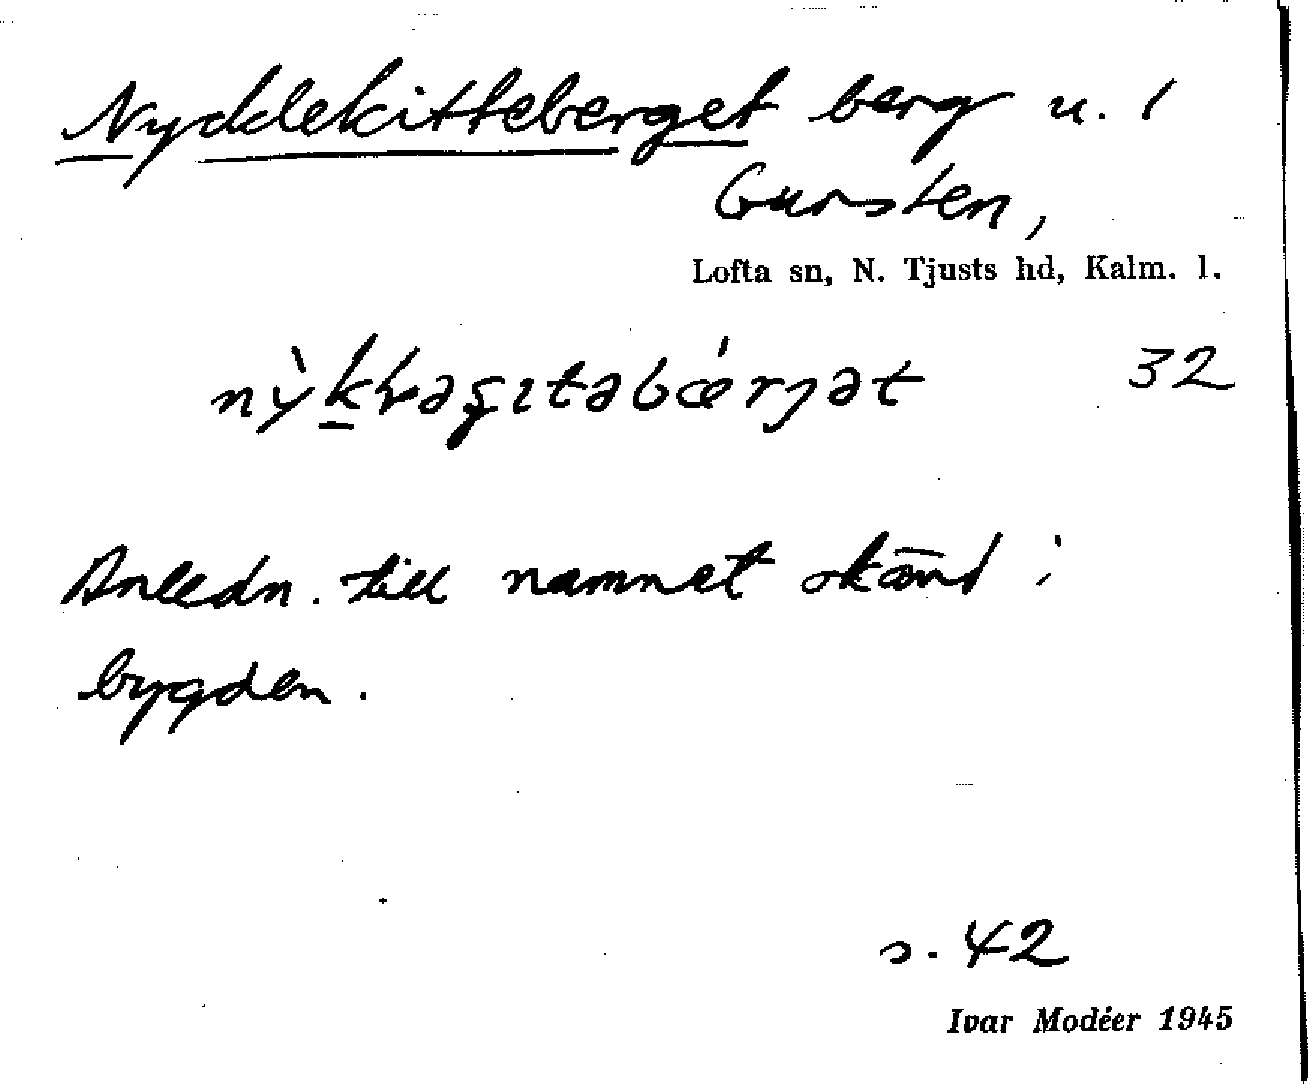 Nyddekitteberget berg u. 1
Gursten,
Lofta sn, N. Tjusts hd, Kalm. l.
32
Anledn. till namnet okänd i
bygden.
s. 42
Ivar Modéer 1945